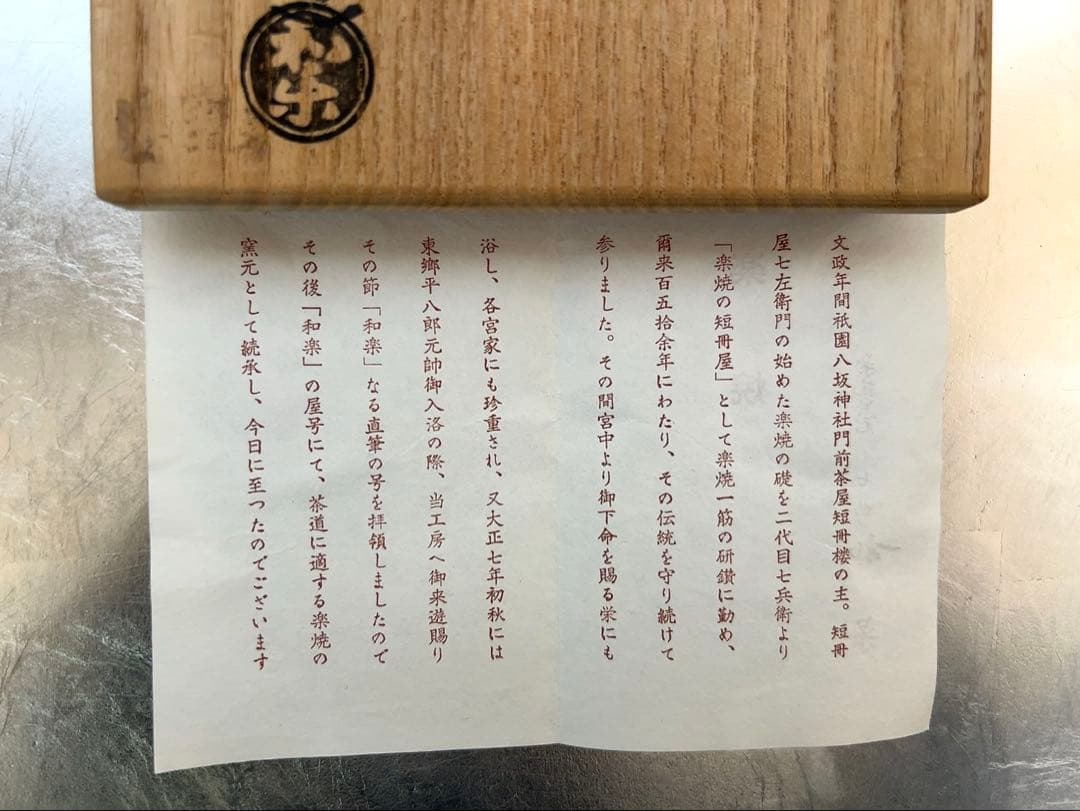 和楽
文政年間祇園八坂神社門前茶屋短冊楼の主。短冊
屋七左衛門の始めた楽焼の礎を二代目七兵衛より
「楽焼の短冊屋」として楽焼一筋の研鑽に勤め、
爾来百五拾余年にわたり、その伝統を守り続けて
参りました。その間宮中より御下命を賜る栄にも
浴し、各宮家にも珍重され、又大正七年初秋には
東郷平八郎元帥御入洛の際、当工房へ御来遊賜り
その節「和楽」なる直筆の号を拝領しましたので
その後「和楽」の屋号にて、茶道に適する楽焼の
窯元として続承し、今日に至つたのでございます